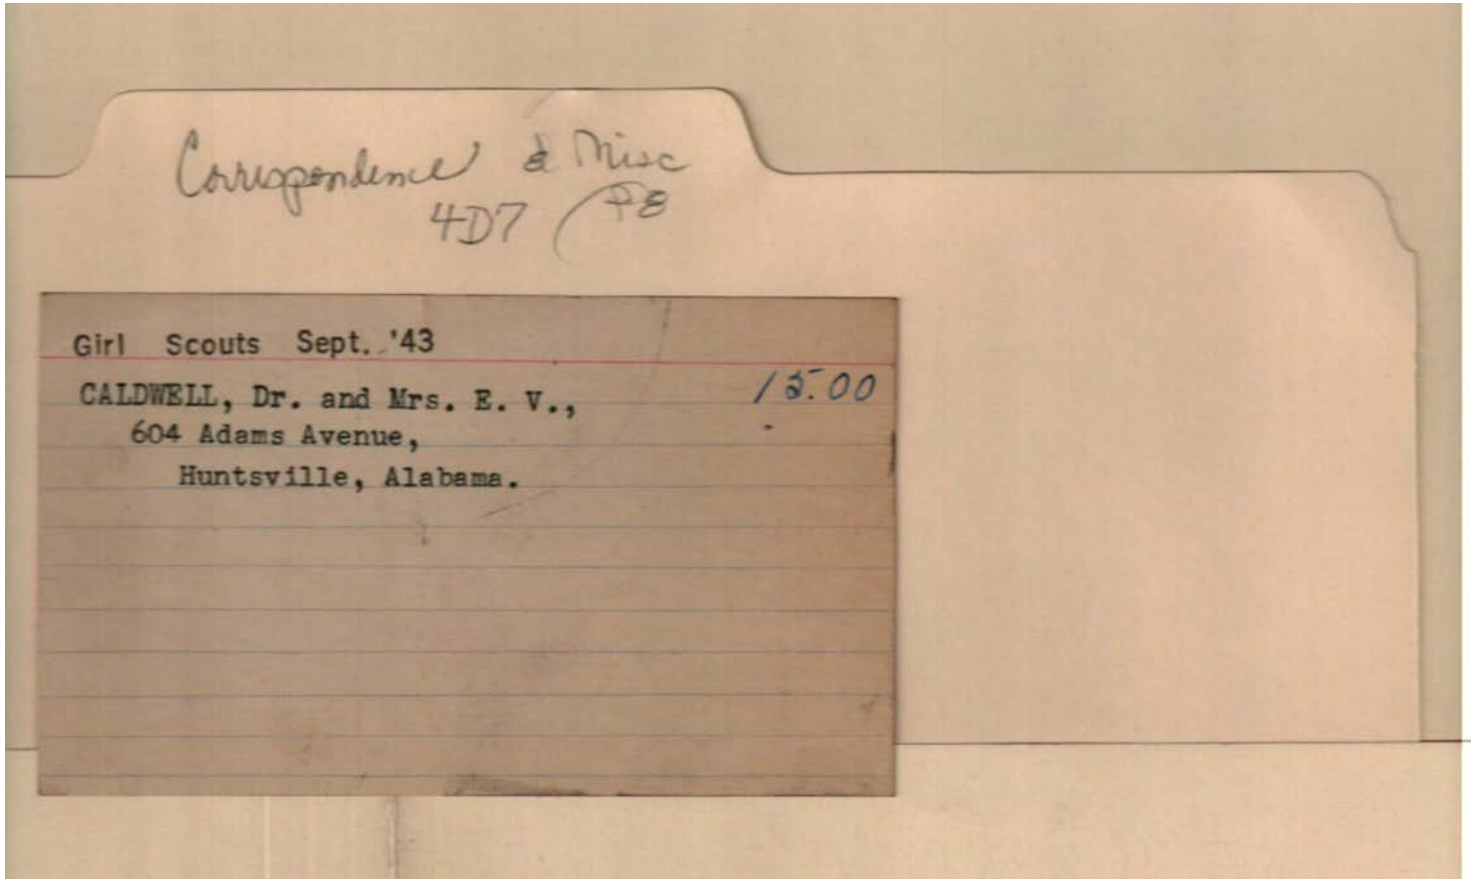 Correspondence & Misc
4D7 P8
Girl Scouts Sept. '43
CALDWELL, Dr. and Mrs. E. V., 15.00
604 Adams Avenue,
Huntsville, Alabama.